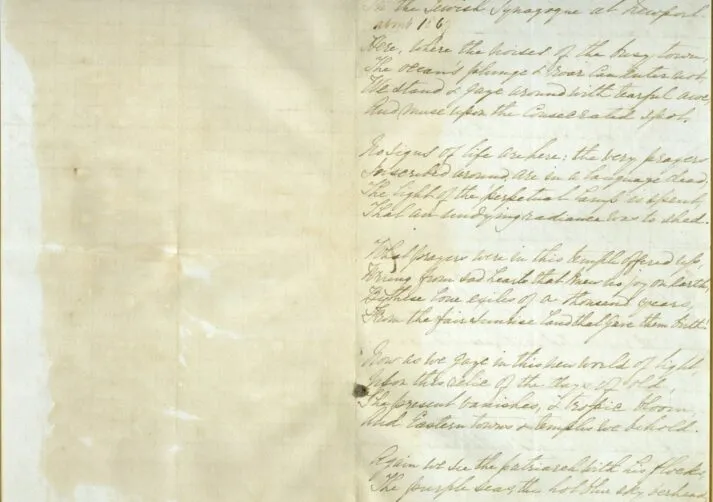 In the Jewish Synagogue at Newport.
about 186
Here, where the noises of the busy town,
The ocean's plunge & roar can enter not,
We stand & gaze around with tearful awe,
And muse upon the consecrated spot.
No signs of life are here; the very prayers
Inscribed around are in a language dead,
The light of the perpetual lamp is spent,
That an undying radiance was to shed.
What prayers were in this temple offered up
Wrung from sad hearts that knew no joy on earth,
By these lone exiles of a thousand years,
From the fair sunrise land that gave them birth!
Now as we gaze in this new world of light,
Upon this relic of the days of old,
The present vanishes, & tropic bloom,
And Eastern towns & temples we behold.
Again we see the patriarch with his flocks
The purple seas, the hot blue sky overhead,